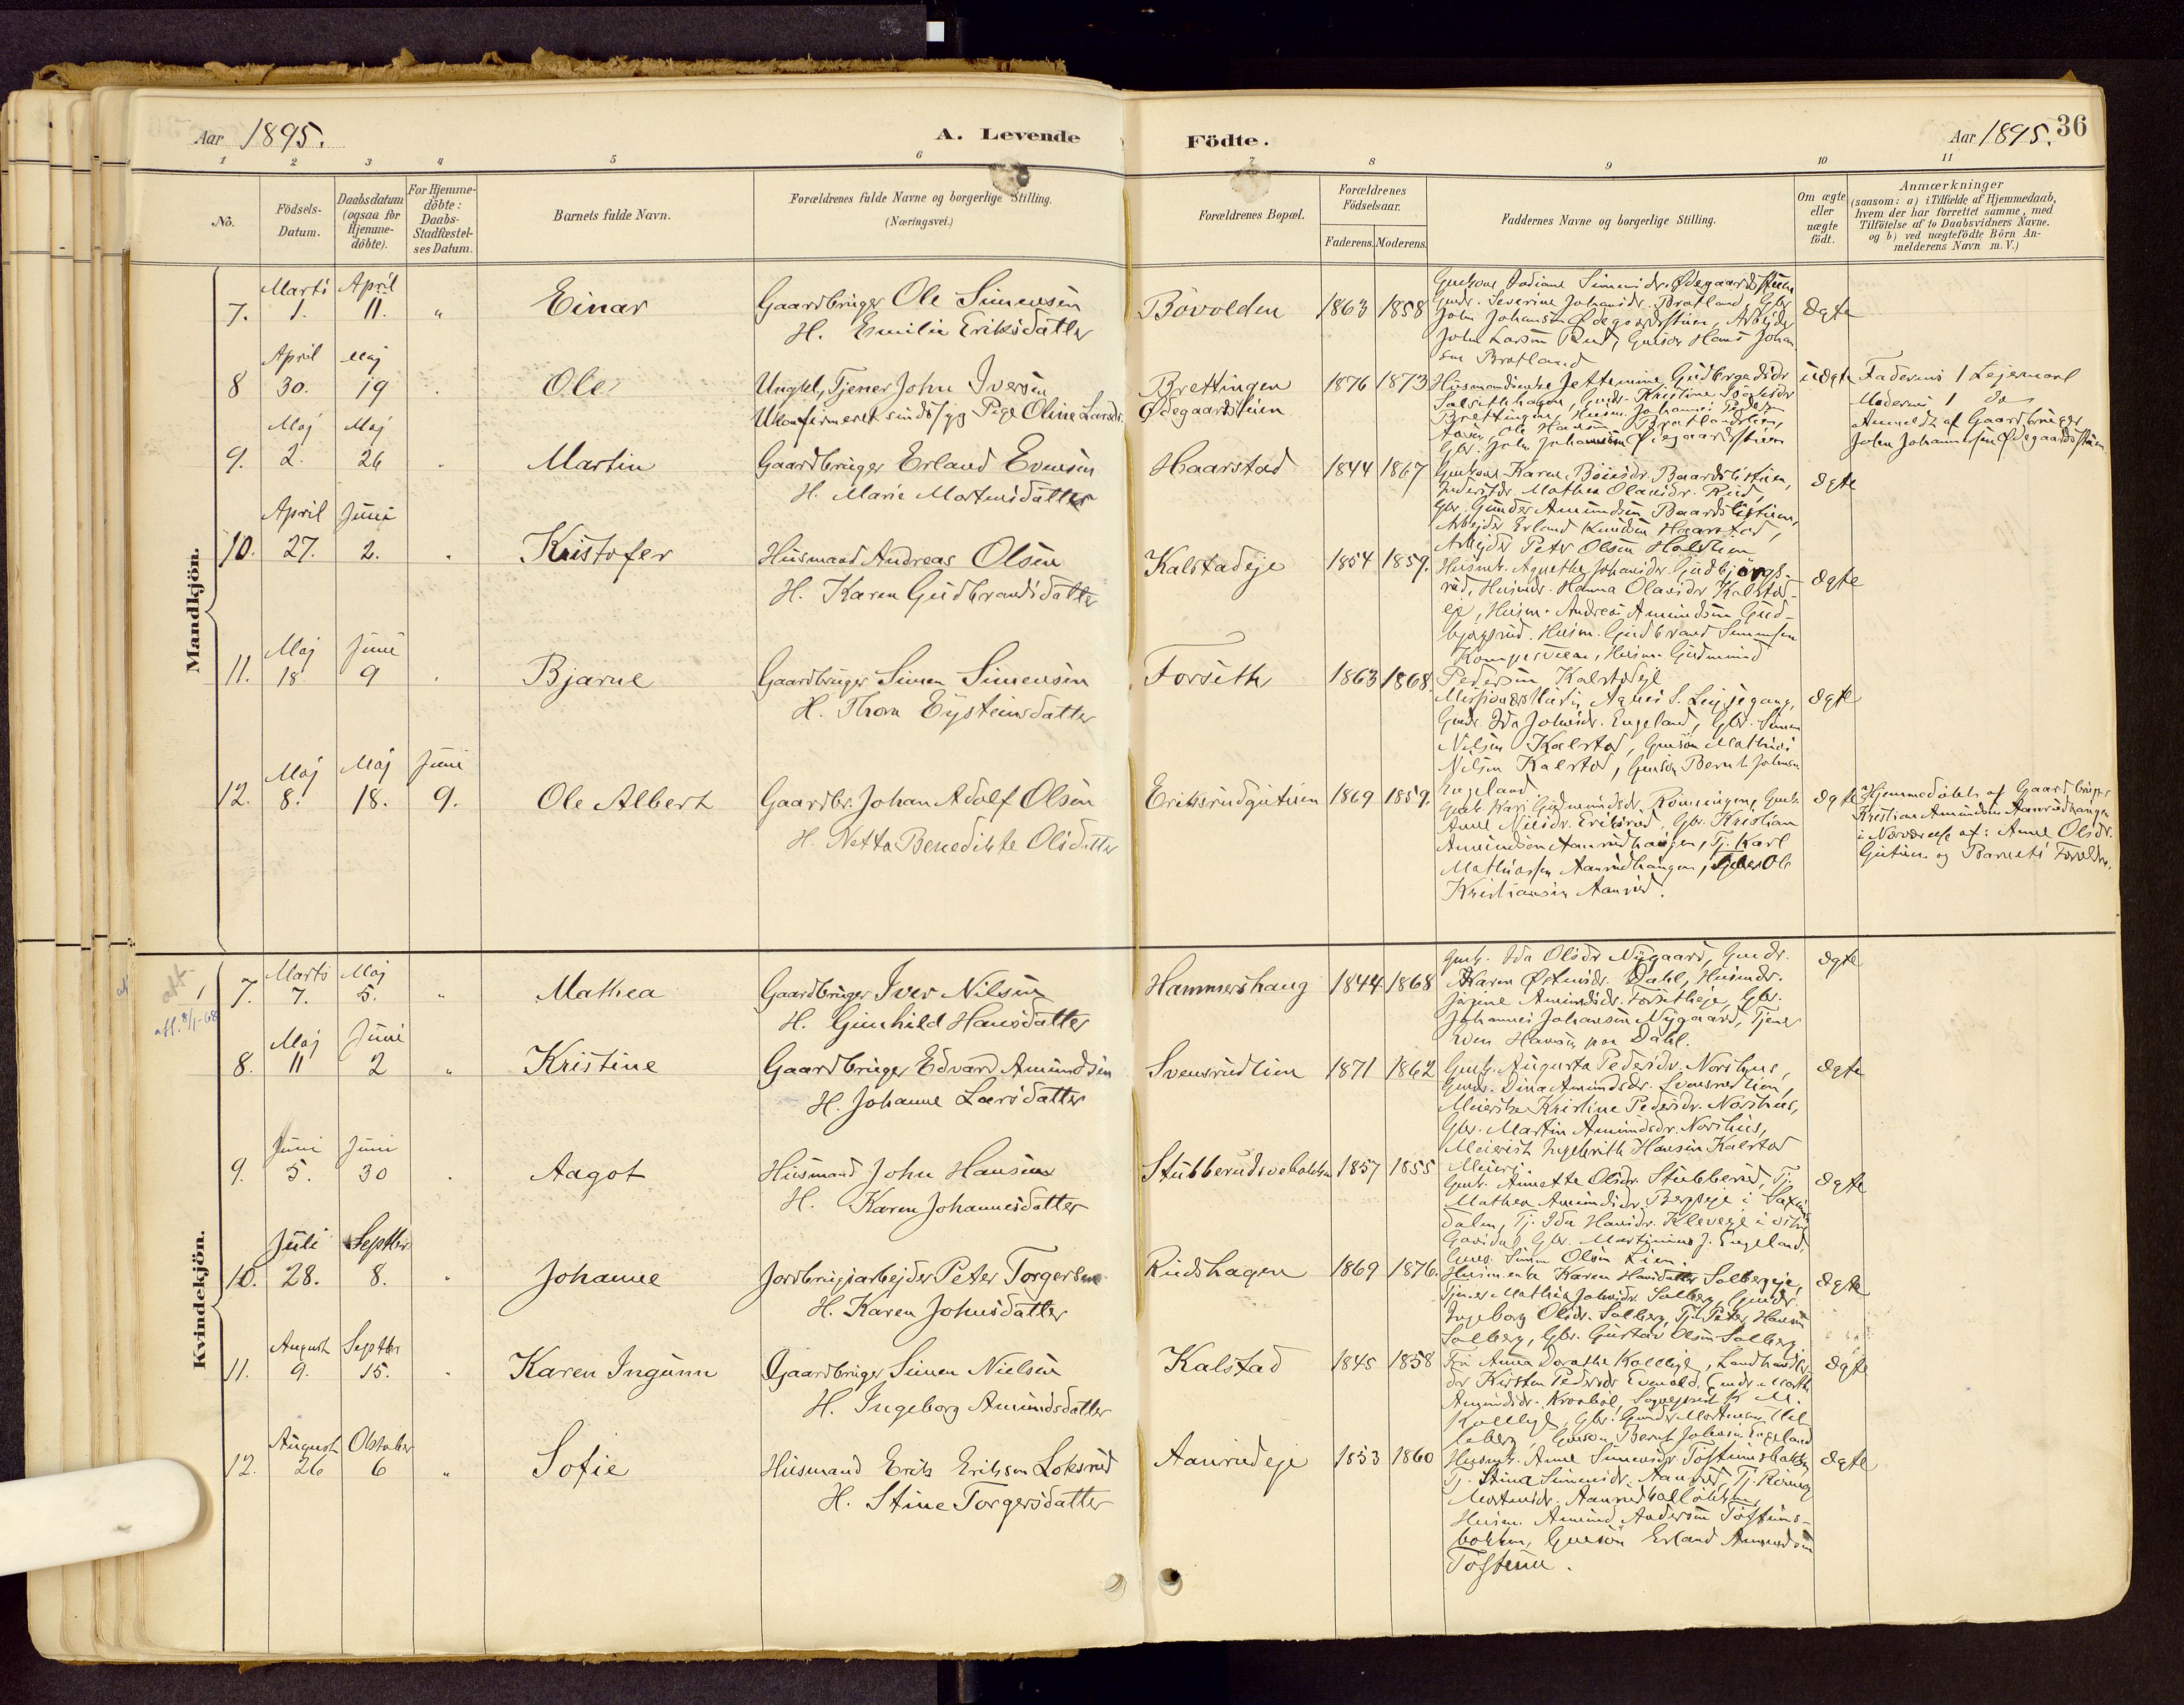 Aar 1895.
A. Levende
Födte.
Aar 1895.
36
1 2 3 4 5 6 7 8 9 10 11
No.
Födsels-
Datum.
Daabsdatum
(ogsaa for
Hjemme-
döbte).
For Hjemme-
döbte:
Daabs-
Stadfæstel-
ses Datum.
Barnets fulde Navn.
Forældrenes fulde Navne og borgerlige Stilling.
(Næringsvei.)
Forældrenes Bopæl.
Forældrenes
Födselsaar.
Faderens. Moderens.
Faddernes Navne og borgerlige Stilling.
Om ægte
eller
uægte
födt.
Anmærkninger
(saasom: a) i Tilfælde af Hjemmedaab,
hvem der har forrettet samme, med
Tilföielse af to Daabsvidners Navne.
og b) ved uægtefödte Börn An-
melderens Navn m. V.)
Mandkjön.
Marts April
7. 1. 11. " Einar
Gaardbruger Ole Simensen
H. Emilie Eriksdatter
Bövolden 1863 1858
Severine Johansdr. Bratland, Gbr.
John Johansen Ødegaardsstuen, Arbejder
John Larsen Rud, Hans Johan
sen Bratland
ægte
April Maj
8 30. 19 . Ole
Ungkl, Tjener John Iversen
Ukonfirmeret sindssyg Pige Oline Larsdr.
Brettingen
Ødegaardstuen
1876 1873
Husmandsenke Jettemine Gudbrandsdr
Brettingen, Husm. Johannes
Gbr. John Johansen Ødegaardsstuen
uægte
Faderens 1 Lejermaal
Moderens 1 do
Anmeldt af Gaardbruger
John Johannesen Ødegaardsstuen
Maj Maj
9. 2. 26 . Martin
Gaardbruger Erland Evensen
H. Marie Mortensdatter
Haarstad 1844 1867
Mathea Olausdr. Rud,
Gbr. Gunder Amundsen Baardslistuen,
Arbejder Erland Knudsen Haarstad,
Arbejder Peter Olsen Holshem
ægte
April Juni
10. 27. 2. . Kristofer
Husmand Andreas Olsen
H. Karen Gudbrandsdatter
Kalstadeje 1854 1859.
Husmk. Agnethe Johansdr. Gudbjorgs-
rud, Husmdr. Hanna Olausdr Kalstad-
eje, Husm. Andreas Amundsen Gud-
bjorgsrud. Husm. Gudbrand Simensen
Husm. Gudmund
Pedersen Kalstadeje
ægte
Maj Juni
11. 18 9 . Bjarne
Gaardbruger Simen Simensen
H. Thora Eysteinsdatter
Forseth 1863 1868.
Agnes S.
Gmdr. Ida Johnsdr. Engeland, Gbr. Simen
Nilsen Kalstad, Gmsön Mathias
Nilsen Kalstad, Gmsön Bernt Johnsen
Engeland
ægte
Maj Maj Juni
12. 8. 18. 9. Ole Albert
Gaardbr. Johan Adolf Olsen
H. Netta Benedikte Olsdatter
Eriksrudgutuen 1869 1859.
Gmk. Kari Gudmundsdr. Rönningen, Gmk.
Anne Nilsdr. Eriksrud, Gbr. Kristian
Amundsen Aanrudhaugen, Tj. Karl
Mathiassen Aanrudhaugen, Ole
Kristiansen Aanrud.
ægte
Hjemmedöbt af Gaardbruger
Kristian Amundsen Aanrudhaugen
i Nærværelse af: Anne Olsdr.
Gutuen og Barnets Forældre.
Kvindekjön.
att.
att. 8/1-68
Marts Maj
7. 7. 5. " Mathea
Gaardbruger Iver Nilsen
H. Gunhild Hansdatter
Hammershaug 1844 1868
Gmk. Ida Olsdr Nygaard, Gmdr.
Karen Østensdr. Dahl, Husmdr.
Jörgine Amundsdr. Forsetheje, Gbr.
Johannes Johansen Nygaard, Tjener
Iven Hansen paa Dahl.
ægte
Maj Juni
8. 11 2 " Kristine
Gaardbruger Edvard Amundsen
H. Johanne Larsdatter
Svensrudlien 1871 1862
Gmk. Augusta Pedersdr. Norshus,
Gmdr. Dina Amundsdr. Svensrudlien,
Meierske Kristine Pedersdr. Norshus,
Gbr. Martin Amundsdr. Norshus,
Meierist Ingebrith Hansen Kalstad
Meieri.
ægte
Juni Juni
9. 5. 30 . Aagot
Husmand John Hansen
H. Karen Johannesdatter
1857 1855
Gmk. Annette Olsdr. Stubberud, Tj.
Mathea Amundsdr. Bergseje i
dalen, Tj. Ida Hansdr. Kleveje i Østre
Gausdal, Gbr. Martinius J. Engeland,
Simen Olsen Lien.
ægte
Juli Septbr.
10. 28. 8. " Johanne
Jordbrugsarbejder Peter Torgersen
H. Karen Johnsdatter
Rudshagen 1869 1876.
Husm.enke Karen Hansdatter Solbergeje,
Tjener Mathea Johnsdr. Solberg, Gmdr.
Ingeborg Olsdr. Solberg, Tj. Peter Hansen
Solberg, Gbr. Gustav Olsen Solberg.
ægte
August Septbr
11. 9. 15. . Karen Ingunn
Gaardbruger Simen Nielsen
H. Ingeborg Amundsdatter
Kalstad 1845 1858
Fru Anna Dorothe Kolleje, Landhandler-
Kirsten Pedersdr
Amundsdr. Kroabøl, Sogneprest M.
Gbr. Gunder Mortensen
Gmsön Bernt Johnsen Engeland
ægte
August Oktober
12. 26 6 " Sofie
Husmand Erik Eriksen Loksrud
H. Stine Torgersdatter
Aanrudeje 1853 1860
Husmk. Anne Simensdr Tofstunsbakken,
Tj. Stina Simensdr. Aanrud, Tj.
Mortensdr.
Husm. Amund Andersen Tofstuns-
bakken, Gmsön Erland Amundsen
Tofstuen.
ægte